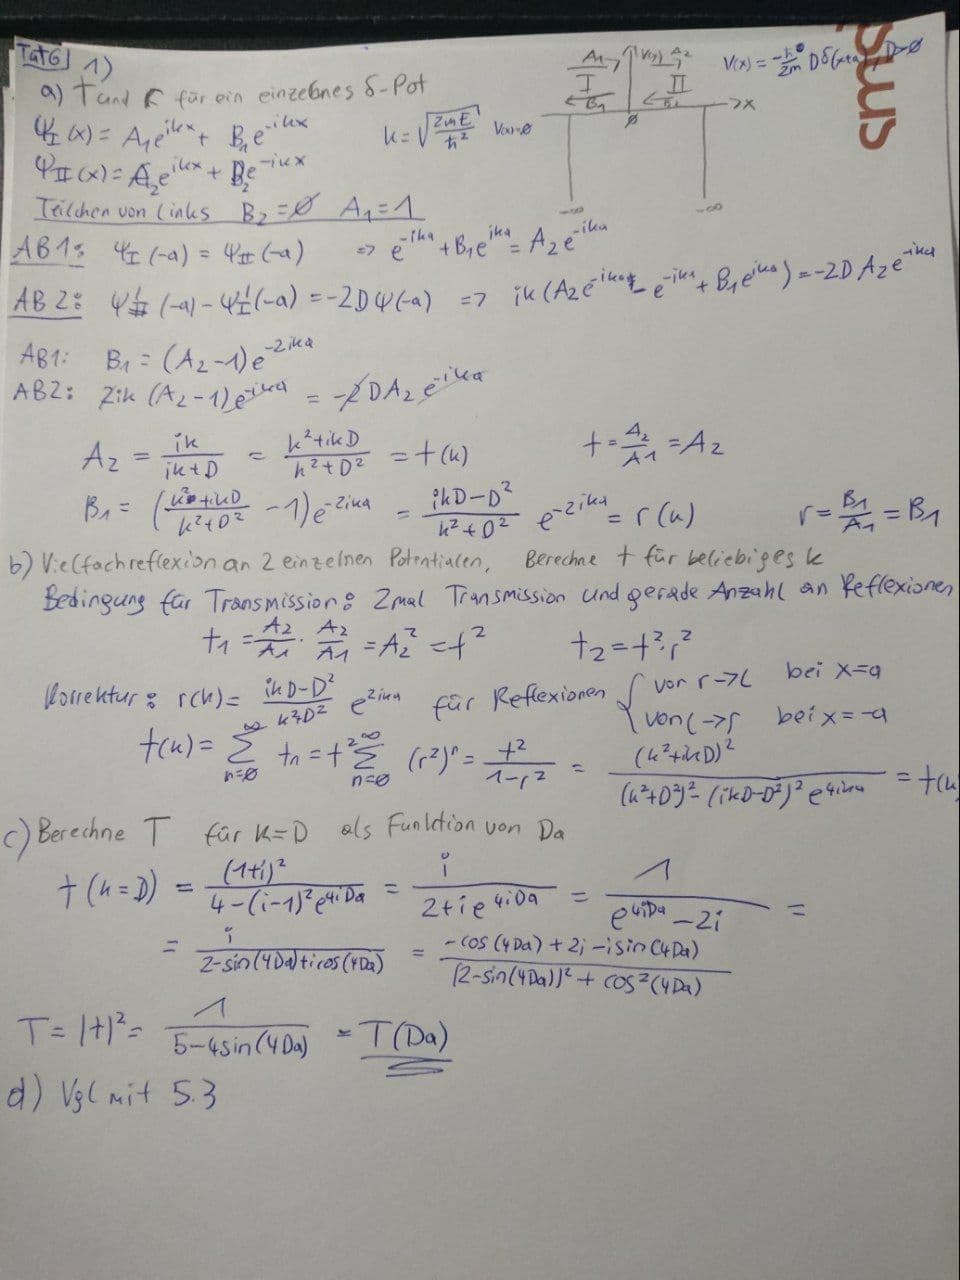 TutG] 1)
a) t und r für ein einzelnes δ-Pot
V(x) = -ℏ²/2m D δ(x+a), D>0
A₁→ I ←B₁ V(x) A₂→ II ←B₂ →x
0
-∞ -∞
Ψ_I(x) = A₁e^{ikx} + B₁e^{-ikx} k = √(2mE/ℏ²) V(x)=0
Ψ_II(x) = A₂e^{ikx} + B₂e^{-ikx}
Teilchen von Links B₂=0 A₁=1
AB1: Ψ_I(-a) = Ψ_II(-a) => e^{-ika} + B₁e^{ika} = A₂e^{-ika}
AB2: Ψ'_II(-a) - Ψ'_I(-a) = -2DΨ(-a) => ik(A₂e^{-ika} - e^{-ika} + B₁e^{ika}) = -2DA₂e^{-ika}
AB1: B₁ = (A₂-1)e^{-2ika}
AB2: 2ik(A₂-1)e^{-ika} = -2DA₂e^{-ika}
A₂ = ik/(ik+D) = (k²+ikD)/(k²+D²) = t(k) t = A₂/A₁ = A₂
B₁ = ((k²+ikD)/(k²+D²) - 1)e^{-2ika} = (ikD-D²)/(k²+D²) e^{-2ika} = r(k) r = B₁/A₁ = B₁
b) Vielfachreflexion an 2 einzelnen Potentialen, Berechne t für beliebiges k
Bedingung für Transmission: 2mal Transmission und gerade Anzahl an Reflexionen
t₁ = A₂/A₁ · A₂/A₁ = A₂² = t² t₂ = t²·r²
Korrektur: r(k) = (ikD-D²)/(k²+D²) e^{2ika} für Reflexionen { von r->l bei x=a
von l->r bei x=-a
t(k) = Σ_{n=0}^∞ tₙ = t² Σ_{n=0}^∞ (r²)ⁿ = t²/(1-r²) = (k²+ikD)²/((k²+D²)² - (ikD-D²)² e^{4ika}) = t(k
c) Berechne T für k=D als Funktion von Da
t(k=D) = (1+i)²/(4-(i-1)²e^{4iDa}) = i/(2+ie^{4iDa}) = 1/(e^{4iDa}-2i) =
= i/(2-sin(4Da)+icos(4Da)) = (-cos(4Da)+2i-isin(4Da))/((2-sin(4Da))²+cos²(4Da))
T = |t|² = 1/(5-4sin(4Da)) = T(Da)
d) Vgl mit 5.3